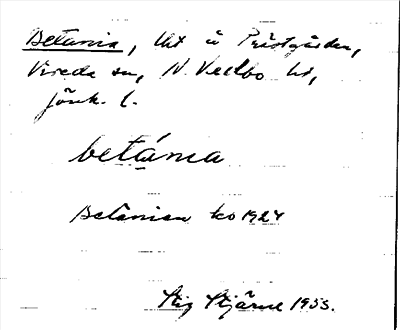 Betania, lht å Prästgården,
Vireda sn, N. Vedbo hd,
Jönk. l.
betánia
Betanien ko 1924
Stig Stjärne 1955.